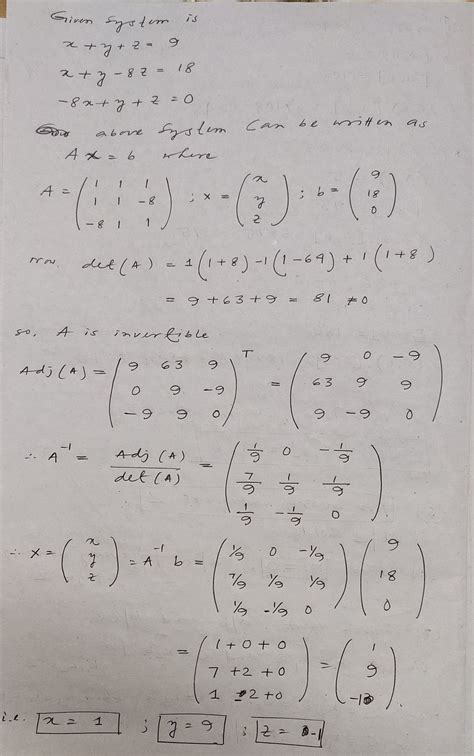 Given System is
x + y + z = 9
x + y - 8z = 18
-8x + y + z = 0
above System Can be written as
Ax = b where
A = (1 1 1; 1 1 -8; -8 1 1) ; x = (x; y; z) ; b = (9; 18; 0)
Now det(A) = 1(1+8) -1(1-64) + 1(1+8)
= 9 + 63 + 9 = 81 ≠ 0
So, A is invertible
Adj(A) = (9 63 9; 0 9 -9; -9 9 0)^T = (9 0 -9; 63 9 9; 9 -9 0)
∴ A^-1 = Adj(A)/det(A) = (1/9 0 -1/9; 7/9 1/9 1/9; 1/9 -1/9 0).
∴ x = (x; y; z) = A^-1 b = (1/9 0 -1/9; 7/9 1/9 1/9; 1/9 -1/9 0) (9; 18; 0)
= (1+0+0; 7+2+0; 1-2+0) = (1; 9; -1).
i.e. x = 1 ; y = 9 ; z = -1